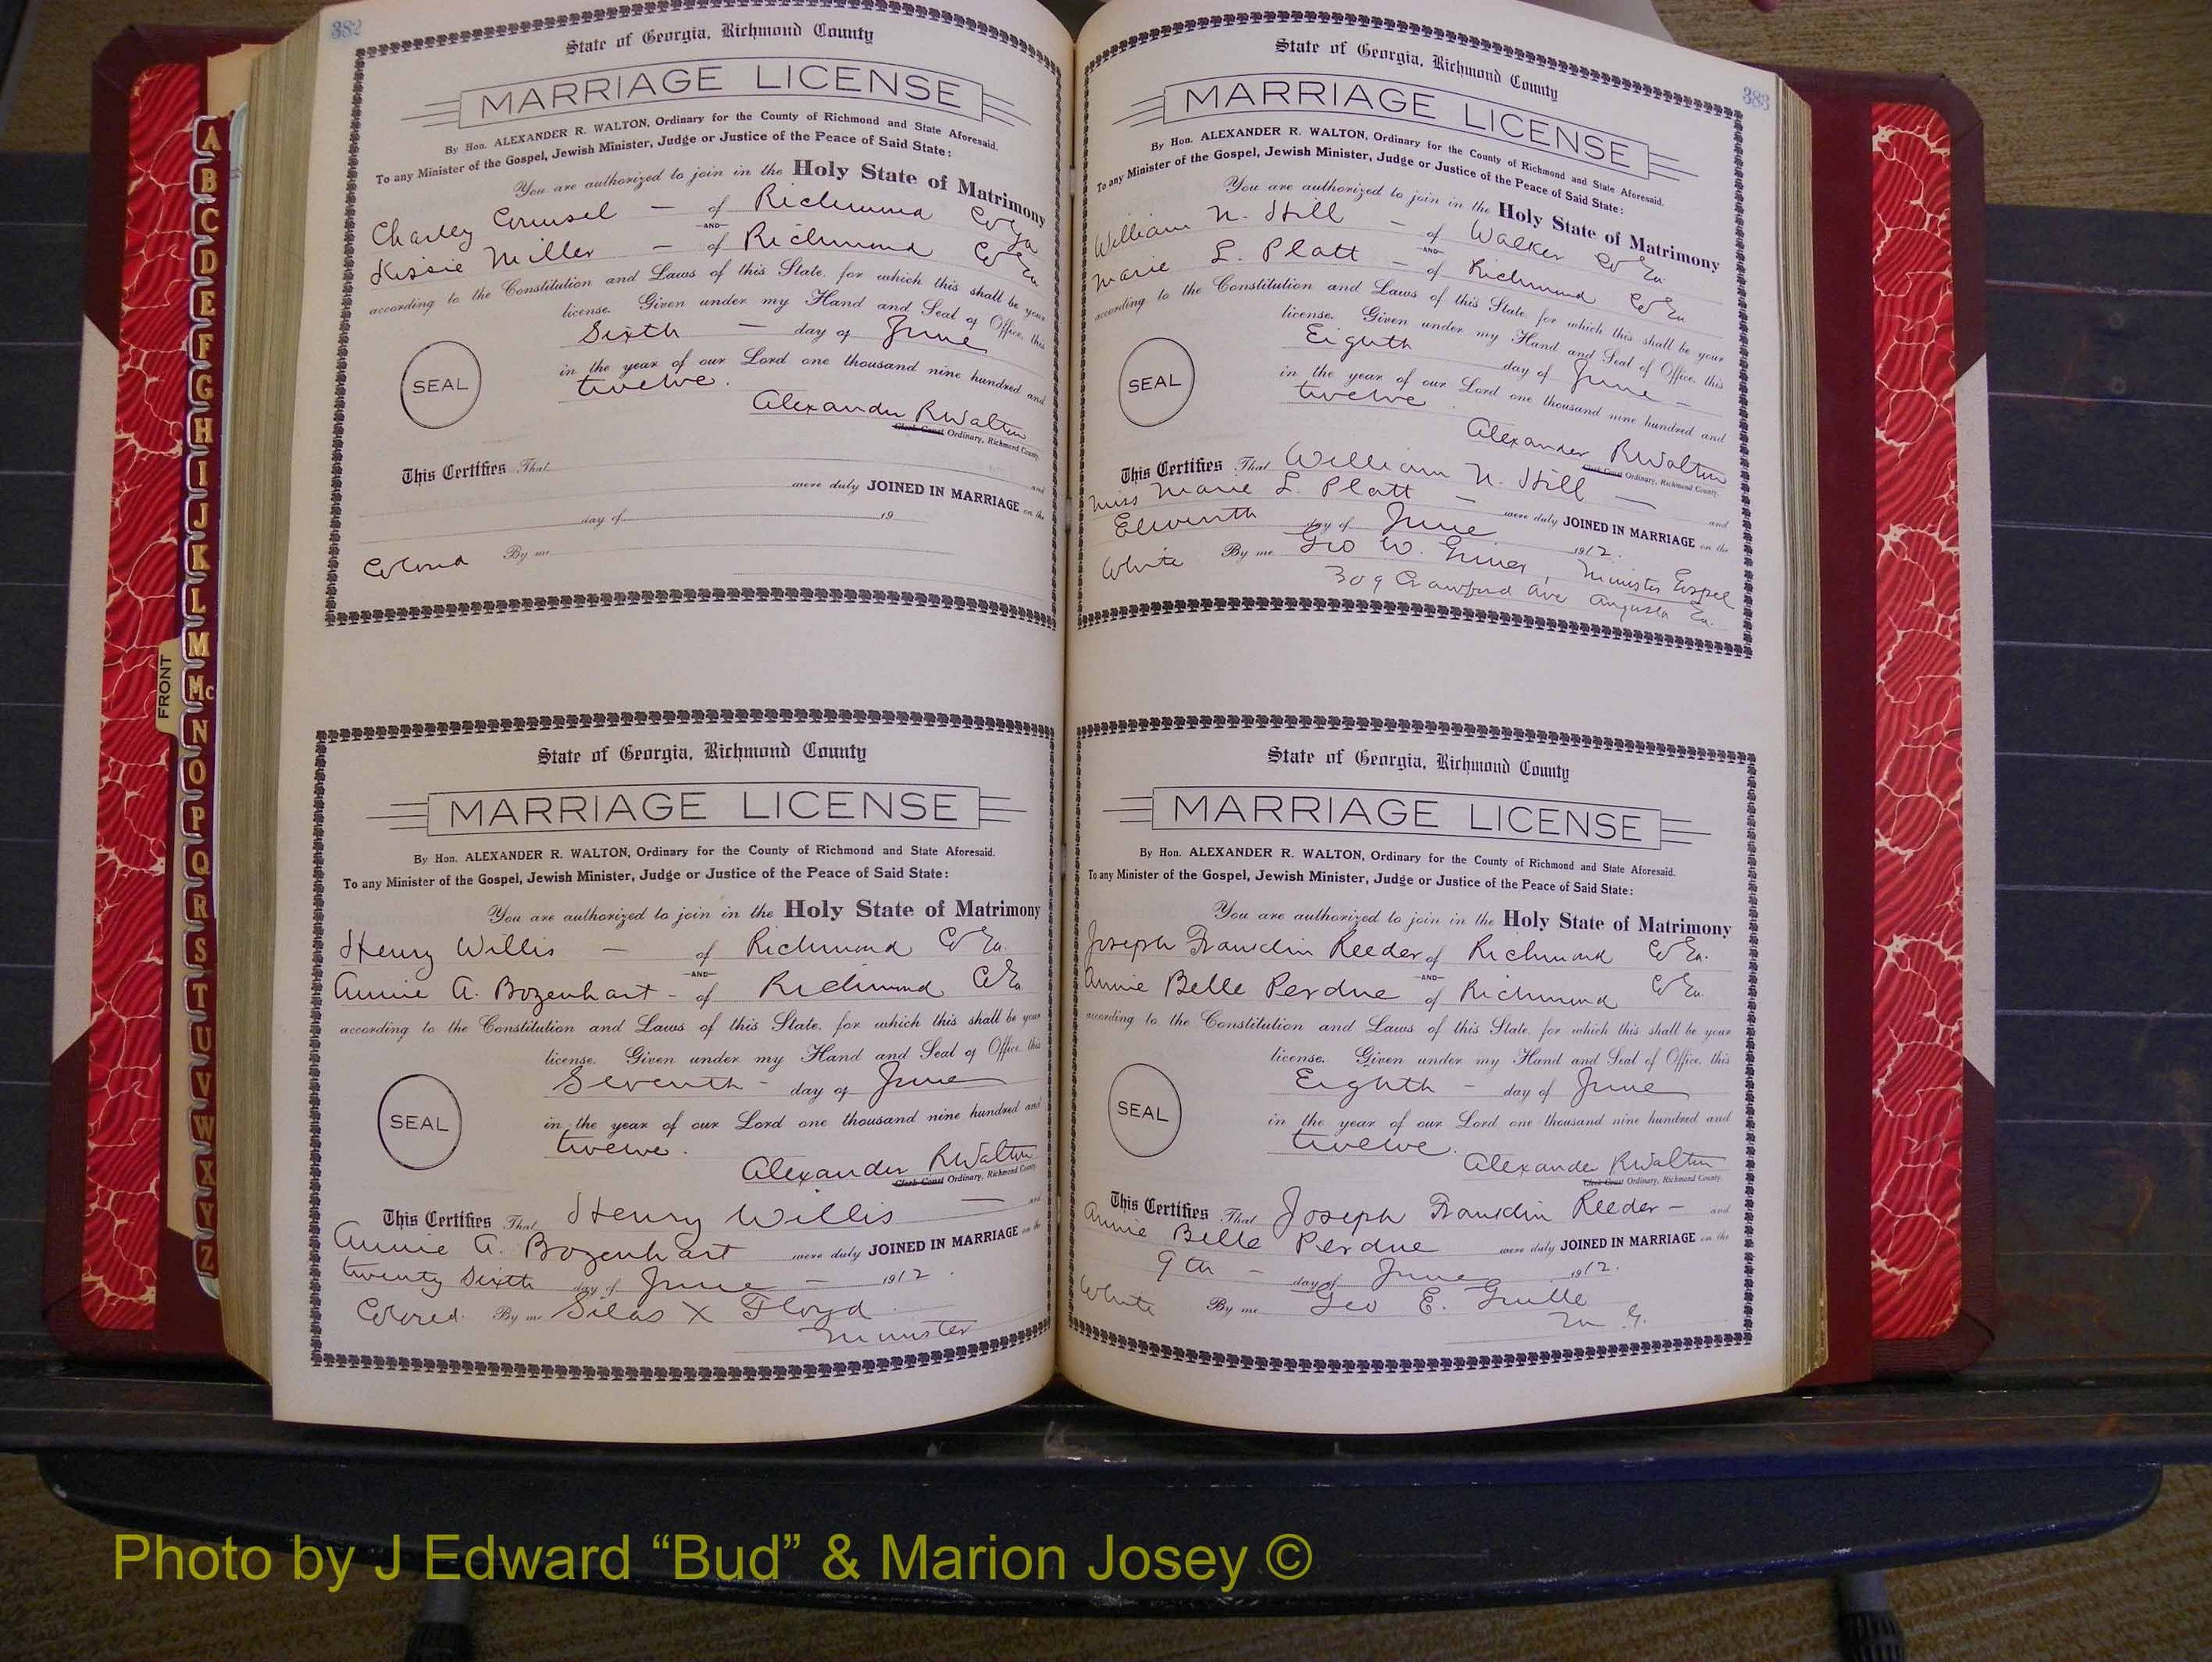 382
State of Georgia, Richmond County
MARRIAGE LICENSE
By Hon. ALEXANDER R. WALTON, Ordinary for the County of Richmond and State Aforesaid.
To any Minister of the Gospel, Jewish Minister, Judge or Justice of the Peace of Said State:
You are authorized to join in the Holy State of Matrimony
Charley Counsel — of Richmond Co Ga
—AND—
Kissie Miller — of Richmond Co Ga
according to the Constitution and Laws of this State, for which this shall be your
license. Given under my Hand and Seal of Office, this
Sixth — day of June
in the year of our Lord one thousand nine hundred and
twelve.
SEAL
Alexander R Walton
Clerk Court Ordinary, Richmond County.
This Certifies That and
were duly JOINED IN MARRIAGE on the
day of 19
Colored By me
State of Georgia, Richmond County
MARRIAGE LICENSE
By Hon. ALEXANDER R. WALTON, Ordinary for the County of Richmond and State Aforesaid.
To any Minister of the Gospel, Jewish Minister, Judge or Justice of the Peace of Said State:
You are authorized to join in the Holy State of Matrimony
Henry Willis — of Richmond Co Ga.
—AND—
Annie A. Bozenhart - of Richmond Co Ga
according to the Constitution and Laws of this State, for which this shall be your
license. Given under my Hand and Seal of Office, this
Seventh - day of June
in the year of our Lord one thousand nine hundred and
twelve.
SEAL
Alexander R Walton
Clerk Court Ordinary, Richmond County
This Certifies That Henry Willis — and
Annie A. Bozenhart were duly JOINED IN MARRIAGE on the
twenty Sixth day of June — 1912.
Colored. By me Silas X Floyd
Minister
383
State of Georgia, Richmond County
MARRIAGE LICENSE
By Hon. ALEXANDER R. WALTON, Ordinary for the County of Richmond and State Aforesaid.
To any Minister of the Gospel, Jewish Minister, Judge or Justice of the Peace of Said State:
You are authorized to join in the Holy State of Matrimony
William N. Hill — of Walker Co Ga.
—AND—
Marie L. Platt — of Richmond Co Ga
according to the Constitution and Laws of this State, for which this shall be your
license. Given under my Hand and Seal of Office, this
Eighth day of June —
in the year of our Lord one thousand nine hundred and
twelve.
SEAL
Alexander R Walton
Clerk Court Ordinary, Richmond County.
This Certifies That William N. Hill — and
Miss Marie L. Platt — were duly JOINED IN MARRIAGE on the
Eleventh day of June 1912.
White By me Geo W. Minister Gospel
309 Crawford Ave Augusta Ga.
State of Georgia, Richmond County
MARRIAGE LICENSE
By Hon. ALEXANDER R. WALTON, Ordinary for the County of Richmond and State Aforesaid.
To any Minister of the Gospel, Jewish Minister, Judge or Justice of the Peace of Said State:
You are authorized to join in the Holy State of Matrimony
Joseph Franklin Reeder of Richmond Co Ga.
—AND—
Annie Belle Perdue of Richmond Co Ga
according to the Constitution and Laws of this State, for which this shall be your
license. Given under my Hand and Seal of Office, this
Eighth — day of June
in the year of our Lord one thousand nine hundred and
twelve.
SEAL
Alexander R Walton
Clerk Court Ordinary, Richmond County.
This Certifies That Joseph Franklin Reeder — and
Annie Belle Perdue were duly JOINED IN MARRIAGE on the
9th — day of June 1912.
White By me Geo E.
M. G.
FRONT
A
B
C
D
E
F
G
H
I
J
K
L
M
Mc
N
O
P
Q
R
S
T
U
V
W
X
Y
Z
Photo by J Edward “Bud” & Marion Josey ©